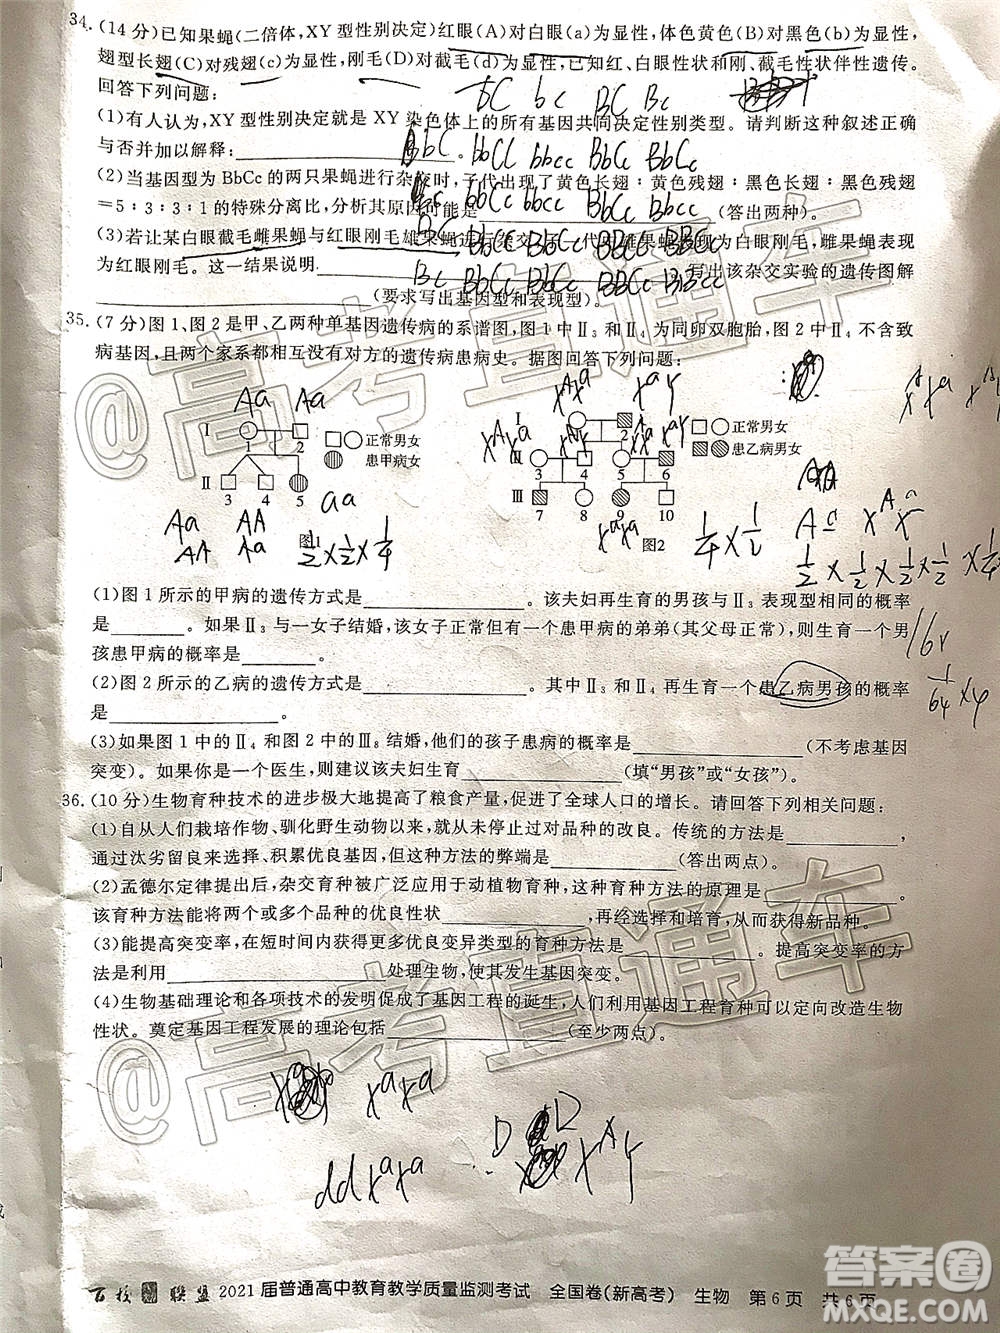 34.(14 分)已知果蝇(二倍体,XY 型性别决定)红眼(A)对白眼(a)为显性,体色黄色(B)对黑色(b)为显性,
翅型长翅(C)对残翅(c)为显性,刚毛(D)对截毛(d)为显性,已知红、白眼性状和刚、截毛性状伴性遗传。
回答下列问题:
bC bc BC Bc
(1)有人认为,XY 型性别决定就是 XY 染色体上的所有基因共同决定性别类型。请判断这种叙述正确
与否并加以解释:
(2)当基因型为 BbCc 的两只果蝇进行杂交时,子代出现了黄色长翅∶黄色残翅∶黑色长翅∶黑色残翅
=5∶3∶3∶1 的特殊分离比,分析其原因可能是 (答出两种)。
(3)若让某白眼截毛雌果蝇与红眼刚毛雄果蝇进行杂交,子代雄果蝇表现为白眼刚毛,雌果蝇表现
为红眼刚毛。这一结果说明 写出该杂交实验的遗传图解
(要求写出基因型和表现型)。
35.(7 分)图 1、图 2 是甲、乙两种单基因遗传病的系谱图,图 1 中Ⅱ3 和Ⅱ4 为同卵双胞胎,图 2 中Ⅱ4 不含致
病基因,且两个家系都相互没有对方的遗传病患病史。据图回答下列问题:
Aa Aa
Ⅰ 1 2
正常男女
患甲病女
Ⅱ 3 4 5
aa
Aa AA
AA Aa
图1
Ⅰ 2
正常男女
患乙病女
Ⅱ 6
Ⅲ 7 8 9 10
图2
(1)图 1 所示的甲病的遗传方式是 。该夫妇再生育的男孩与Ⅱ3 表现型相同的概率
是 。如果Ⅱ3 与一女子结婚,该女子正常但有一个患甲病的弟弟(其父母正常),则生育一个男
孩患甲病的概率是 。
(2)图 2 所示的乙病的遗传方式是 。其中Ⅱ3 和Ⅱ4 再生育一个患乙病男孩的概率
是 。
(3)如果图 1 中的Ⅱ4 和图 2 中的Ⅲ8 结婚,他们的孩子患病的概率是 (不考虑基因
突变)。如果你是一个医生,建议该夫妇生育 (填“男孩”或“女孩”)。
36.(10 分)生物育种技术的进步极大地提高了粮食产量,促进了全球人口的增长。请回答下列相关问题:
(1)自从人们栽培作物、驯化野生动物以来,就未停止过对品种的改良。传统的方法是 ,
通过汰劣留良来选择、积累优良基因,但这种方法的弊端是 (答出两点)。
(2)孟德尔定律提出后,杂交育种被广泛应用于动植物育种,这种育种方法的原理是 。
该育种方法能将两个或多个品种的优良性状 ,再经选择和培育,从而获得新品种。
(3)能提高突变率,在短时间内获得更多优良变异类型的育种方法是 。提高突变率的方
法是利用 处理生物,使其发生基因突变。
(4)生物基础理论和各项技术的发明促成了基因工程的诞生,人们利用基因工程育种可以定向改造生物
性状。奠定基因工程发展的理论包括 (至少两点)。
百校联盟 2021 届普通高中教育教学质量监测考试 全国卷(新高考) 生物 第 6 页 共 6 页
@高考直通车
@高考直通车
答案圈
MXQE.COM